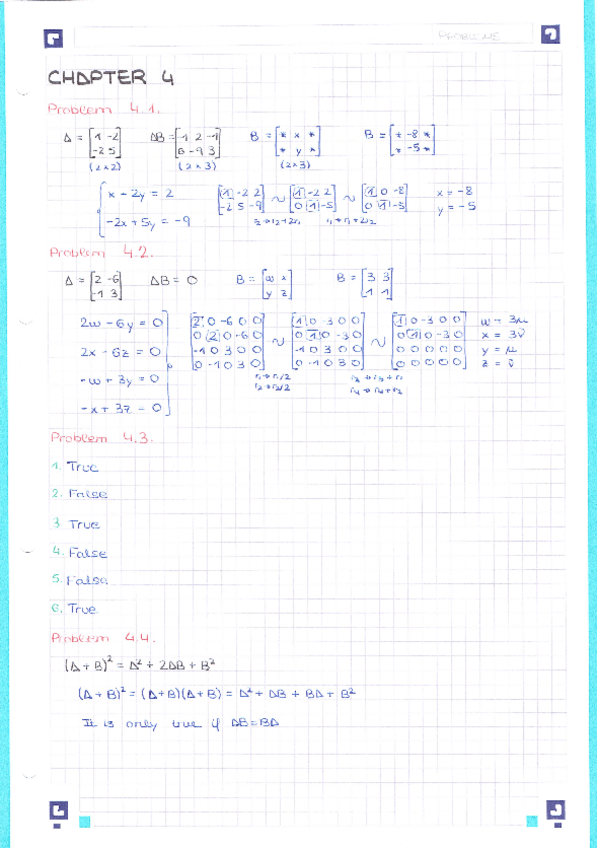 PROBLEMS
CHAPTER 4
Problem 4.1.
A = [1 -2; -2 5] AB = [-1 2 -1; 6 -9 3] B = [* x *; * y *] B = [* -8 *; * -5 *]
(2×2) (2×3) (2×3)
{ x - 2y = 2 [1 -2 2; -2 5 -9] ~ [1 -2 2; 0 1 -5] ~ [1 0 -8; 0 1 -5] x = -8
-2x + 5y = -9 r2→r2+2r1 r1→r1+2r2 y = -5
Problem 4.2.
A = [2 -6; -1 3] AB = 0 B = [w x; y z] B = [3 3; 1 1]
2w - 6y = 0 [2 0 -6 0 0; 0 2 0 -6 0; -1 0 3 0 0; 0 -1 0 3 0] ~ [1 0 -3 0 0; 0 1 0 -3 0; -1 0 3 0 0; 0 -1 0 3 0] ~ [1 0 -3 0 0; 0 1 0 -3 0; 0 0 0 0 0; 0 0 0 0 0] w = 3μ
2x - 6z = 0 x = 3v
-w + 3y = 0 y = μ
-x + 3z = 0 z = v
r1→r1/2 r3→r3+r1
r2→r2/2 r4→r4+r2
Problem 4.3.
1. True
2. False
3 True
4. False
5. False
6. True
Problem 4.4.
(A + B)² = A² + 2AB + B²
(A + B)² = (A+B)(A+B) = A² + AB + BA + B²
It is only true if AB=BA